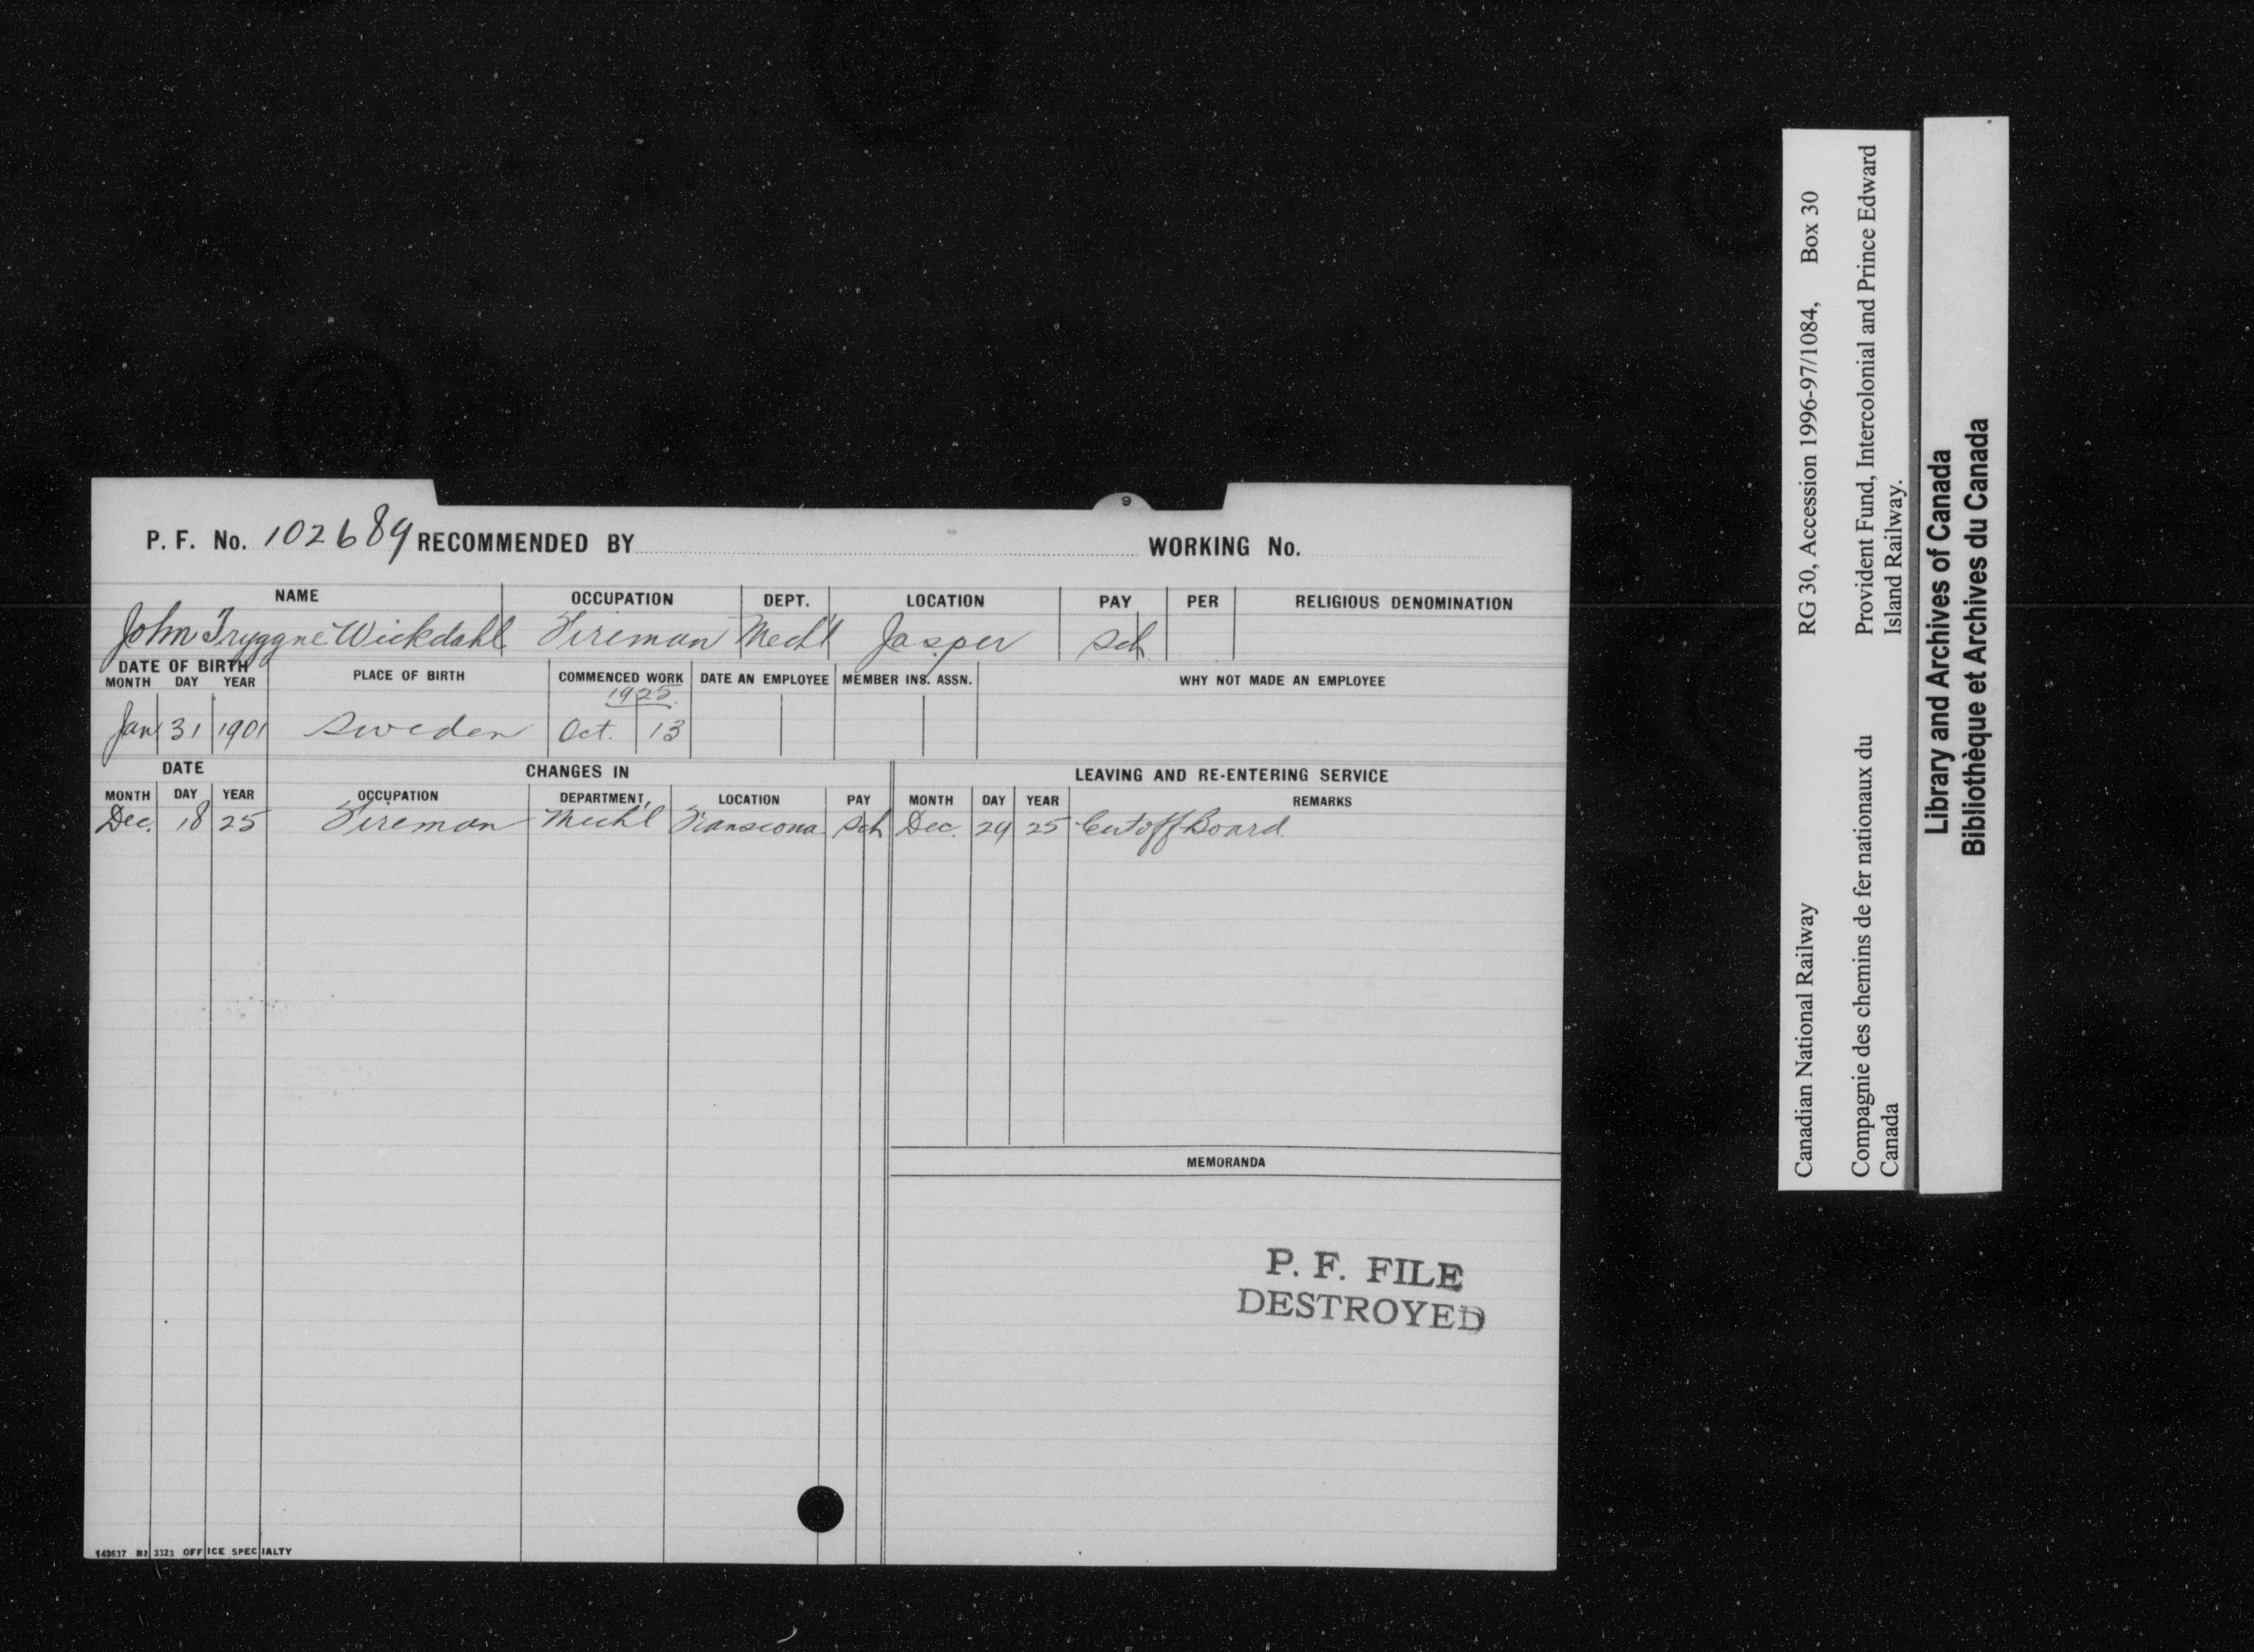 9
P. F. No. 102689 RECOMMENDED BY WORKING No.
NAME OCCUPATION DEPT. LOCATION PAY PER RELIGIOUS DENOMINATION
John Tryggne Wickdahl Fireman Mech'l Jasper Sch
DATE OF BIRTH
MONTH DAY YEAR PLACE OF BIRTH COMMENCED WORK DATE AN EMPLOYEE MEMBER INS. ASSN. WHY NOT MADE AN EMPLOYEE
1925
Jan 31 1901 Sweden Oct. 13
DATE CHANGES IN LEAVING AND RE-ENTERING SERVICE
MONTH DAY YEAR OCCUPATION DEPARTMENT LOCATION PAY MONTH DAY YEAR REMARKS
Dec. 18 25 Fireman Mech'l Transcona Sch Dec. 29 25 Cut off Board
MEMORANDA
P. F. FILE
DESTROYED
140637 B2 3323 OFFICE SPECIALTY
Canadian National Railway RG 30, Accession 1996-97/1084, Box 30
Compagnie des chemins de fer nationaux du Provident Fund, Intercolonial and Prince Edward
Canada Island Railway.
Library and Archives of Canada
Bibliothèque et Archives du Canada